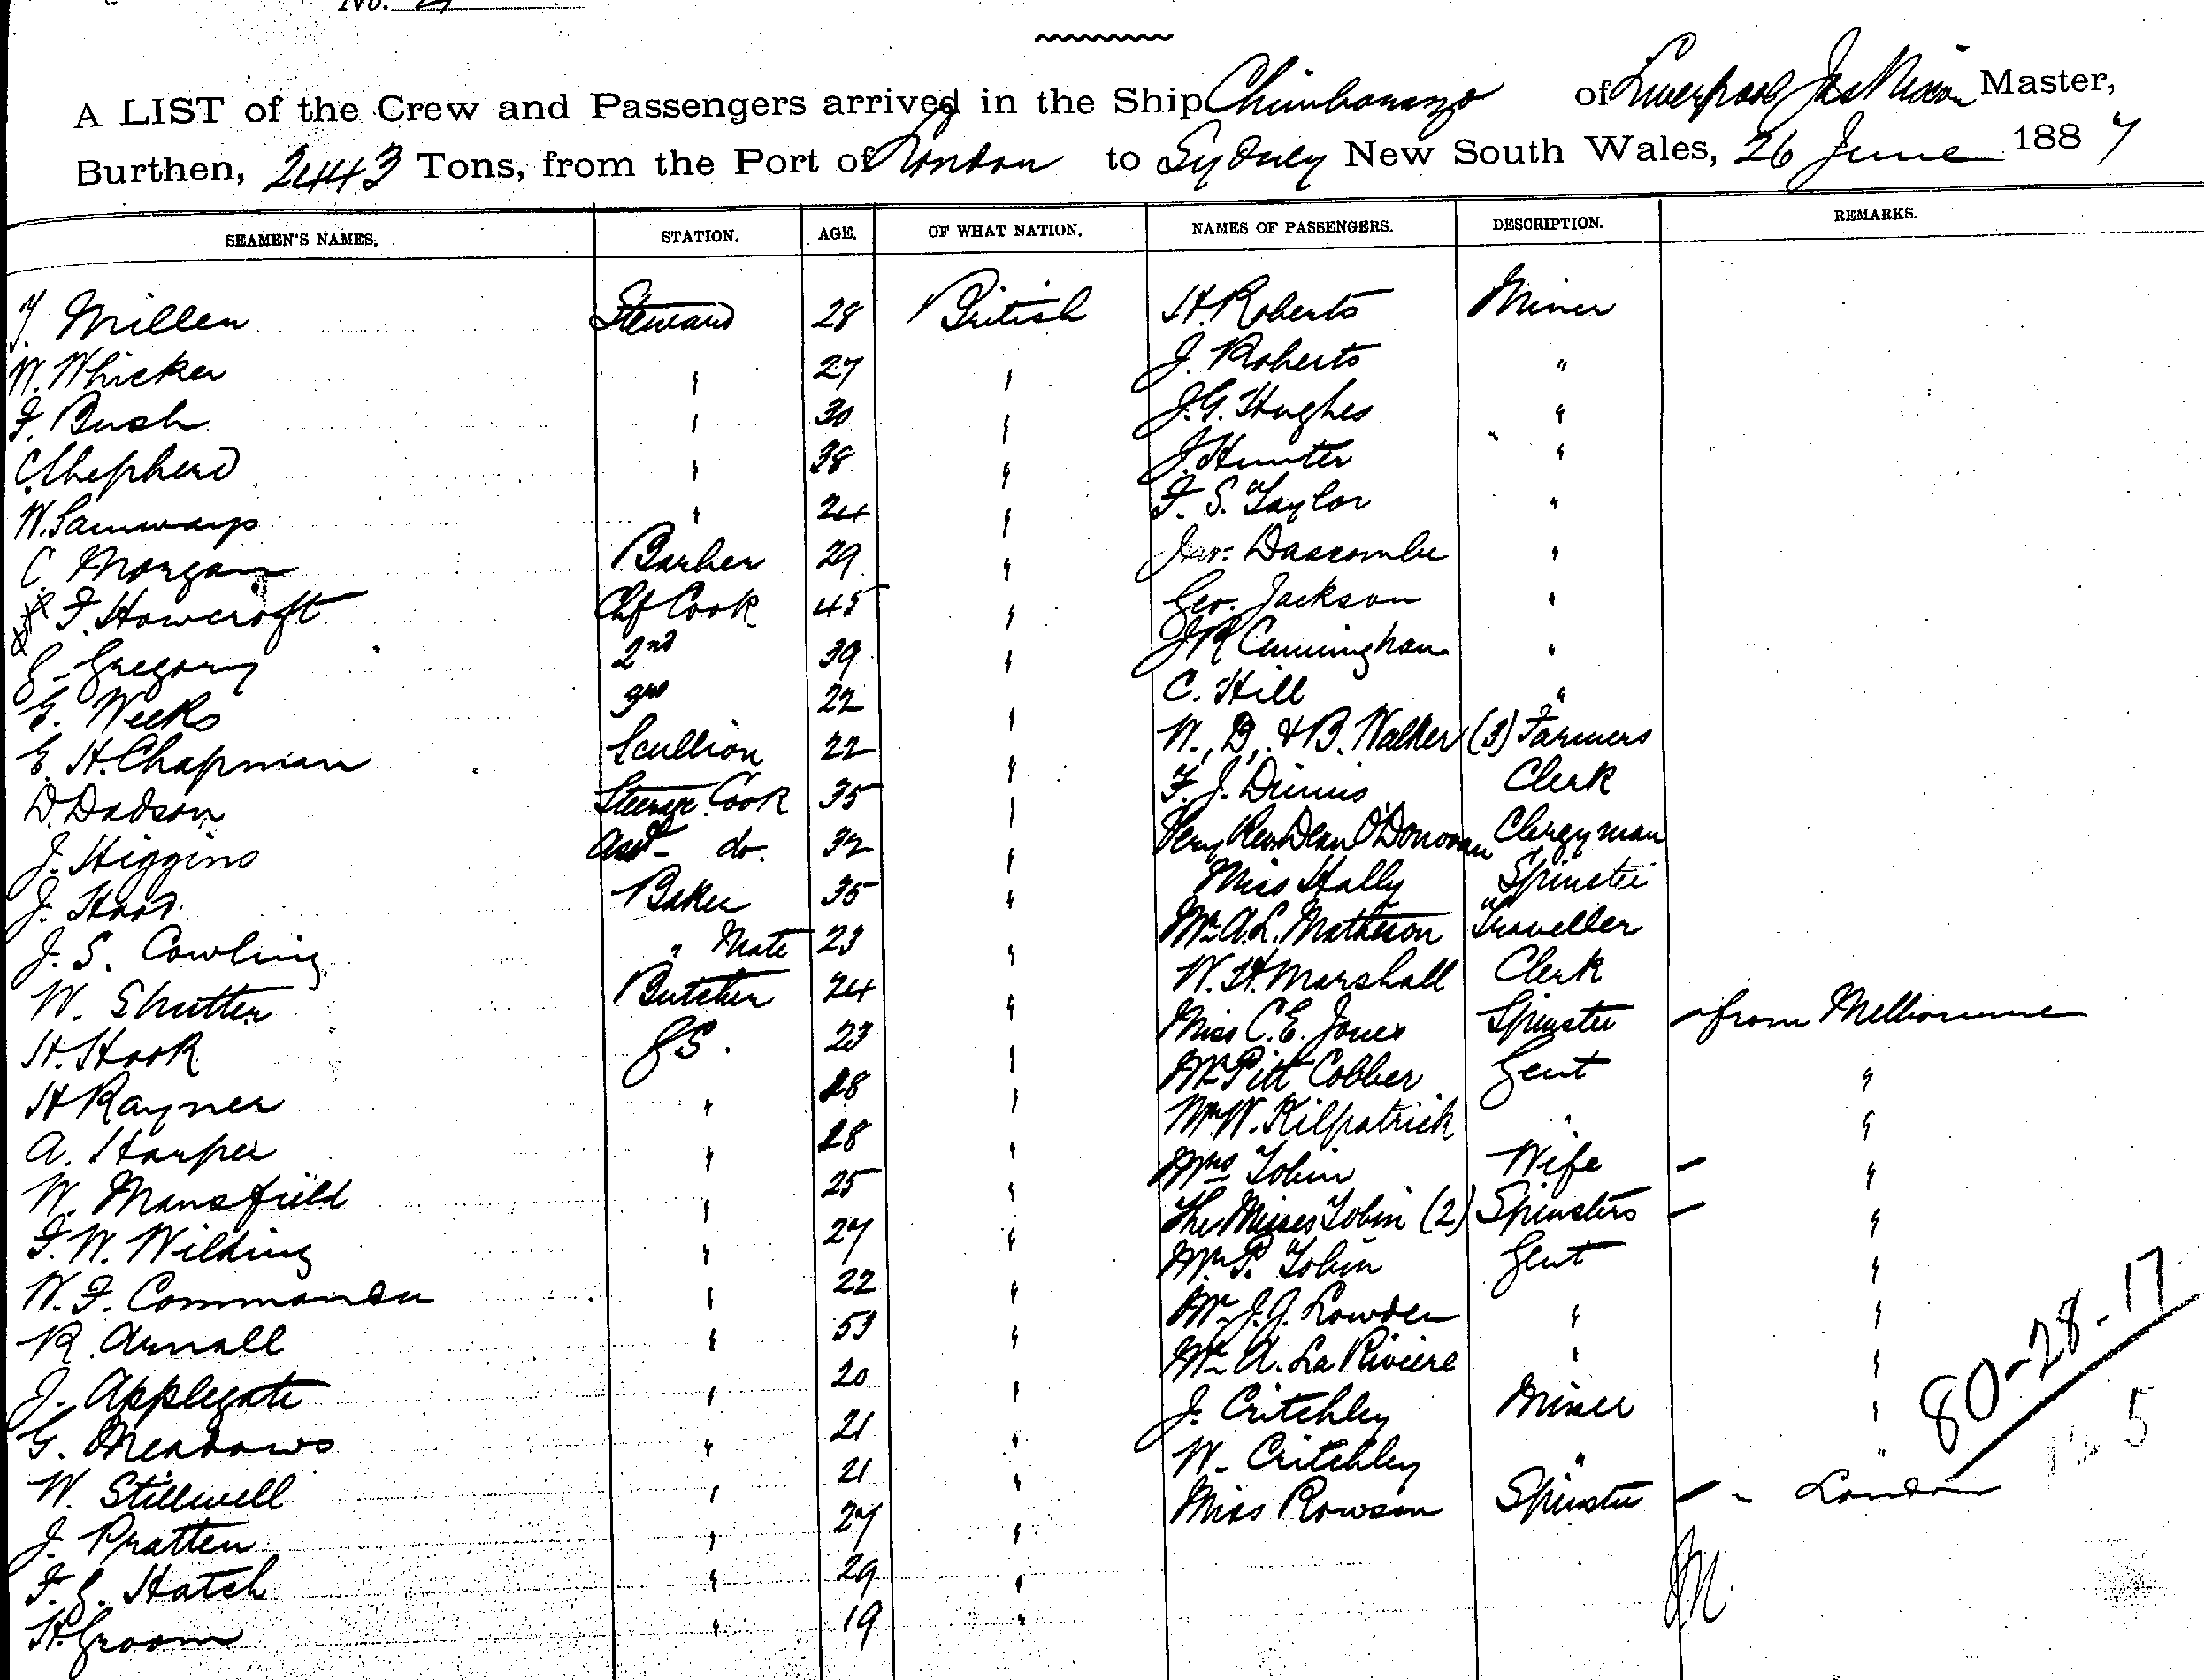 No. 4
A LIST of the Crew and Passengers arrived in the Ship Chimborazo of Liverpool Jas Nixon Master,
Burthen, 2443 Tons, from the Port of London to Sydney New South Wales, 26 June 1887
SEAMEN'S NAMES. STATION. AGE. OF WHAT NATION. NAMES OF PASSENGERS. DESCRIPTION. REMARKS.
J. Millen Steward 28 British H. Roberts Miner
W. Whicker " 27 " J. Roberts "
F. Bush " 30 " J.G. Hughes "
C. Shepherd " 38 " J. Hunter "
W. Samways " 24 " F. S. Taylor "
C. Morgan Barber 29 " Dascombe "
F. Howcroft Chf Cook 45 " Geo. Jackson "
G. Gregory 2nd 39 " J R Cunningham "
E. Weeks 3rd 22 " C. Hill "
E. H. Chapman Scullion 22 " W., D., & B. Walker (3) Farmers
D. Dadson Steerage Cook 35 " F. J. Dinnis Clerk
J. Higgins Asst do. 32 " Very Rev Dean O'Donovan Clergyman
J. Hood Baker 35 " Miss Hally Spinster
J. S. Cowling " Mate 23 " Mr A. L. Matheson Traveller
W. Shutter Butcher 24 " W. H. Marshall Clerk
H. Hook GS. 23 " Miss C. E. Jones Spinster from Melbourne
H Rayner " 28 " Mr Pitt Cobber Gent "
A. Harper " 28 " Mr W. Kilpatrick " "
W. Mansfield " 25 " Mrs Tobin Wife "
F. W. Wilding " 27 " The Misses Tobin (2) Spinsters "
W. F. Commander " 22 " Mr P. Tobin Gent "
R. Arnall " 53 " Mr J. J. Lowden " "
J. Applegate " 20 " Mr A. La Riviere " "
G. Meadows " 21 " J. Critchley Miner "
W. Stillwell " 21 " W. Critchley " "
J. Pratten " 27 " Miss Rowson Spinster " London
F. G. Hatch " 29 "
H. Groom " 19 "
80-28-17
5